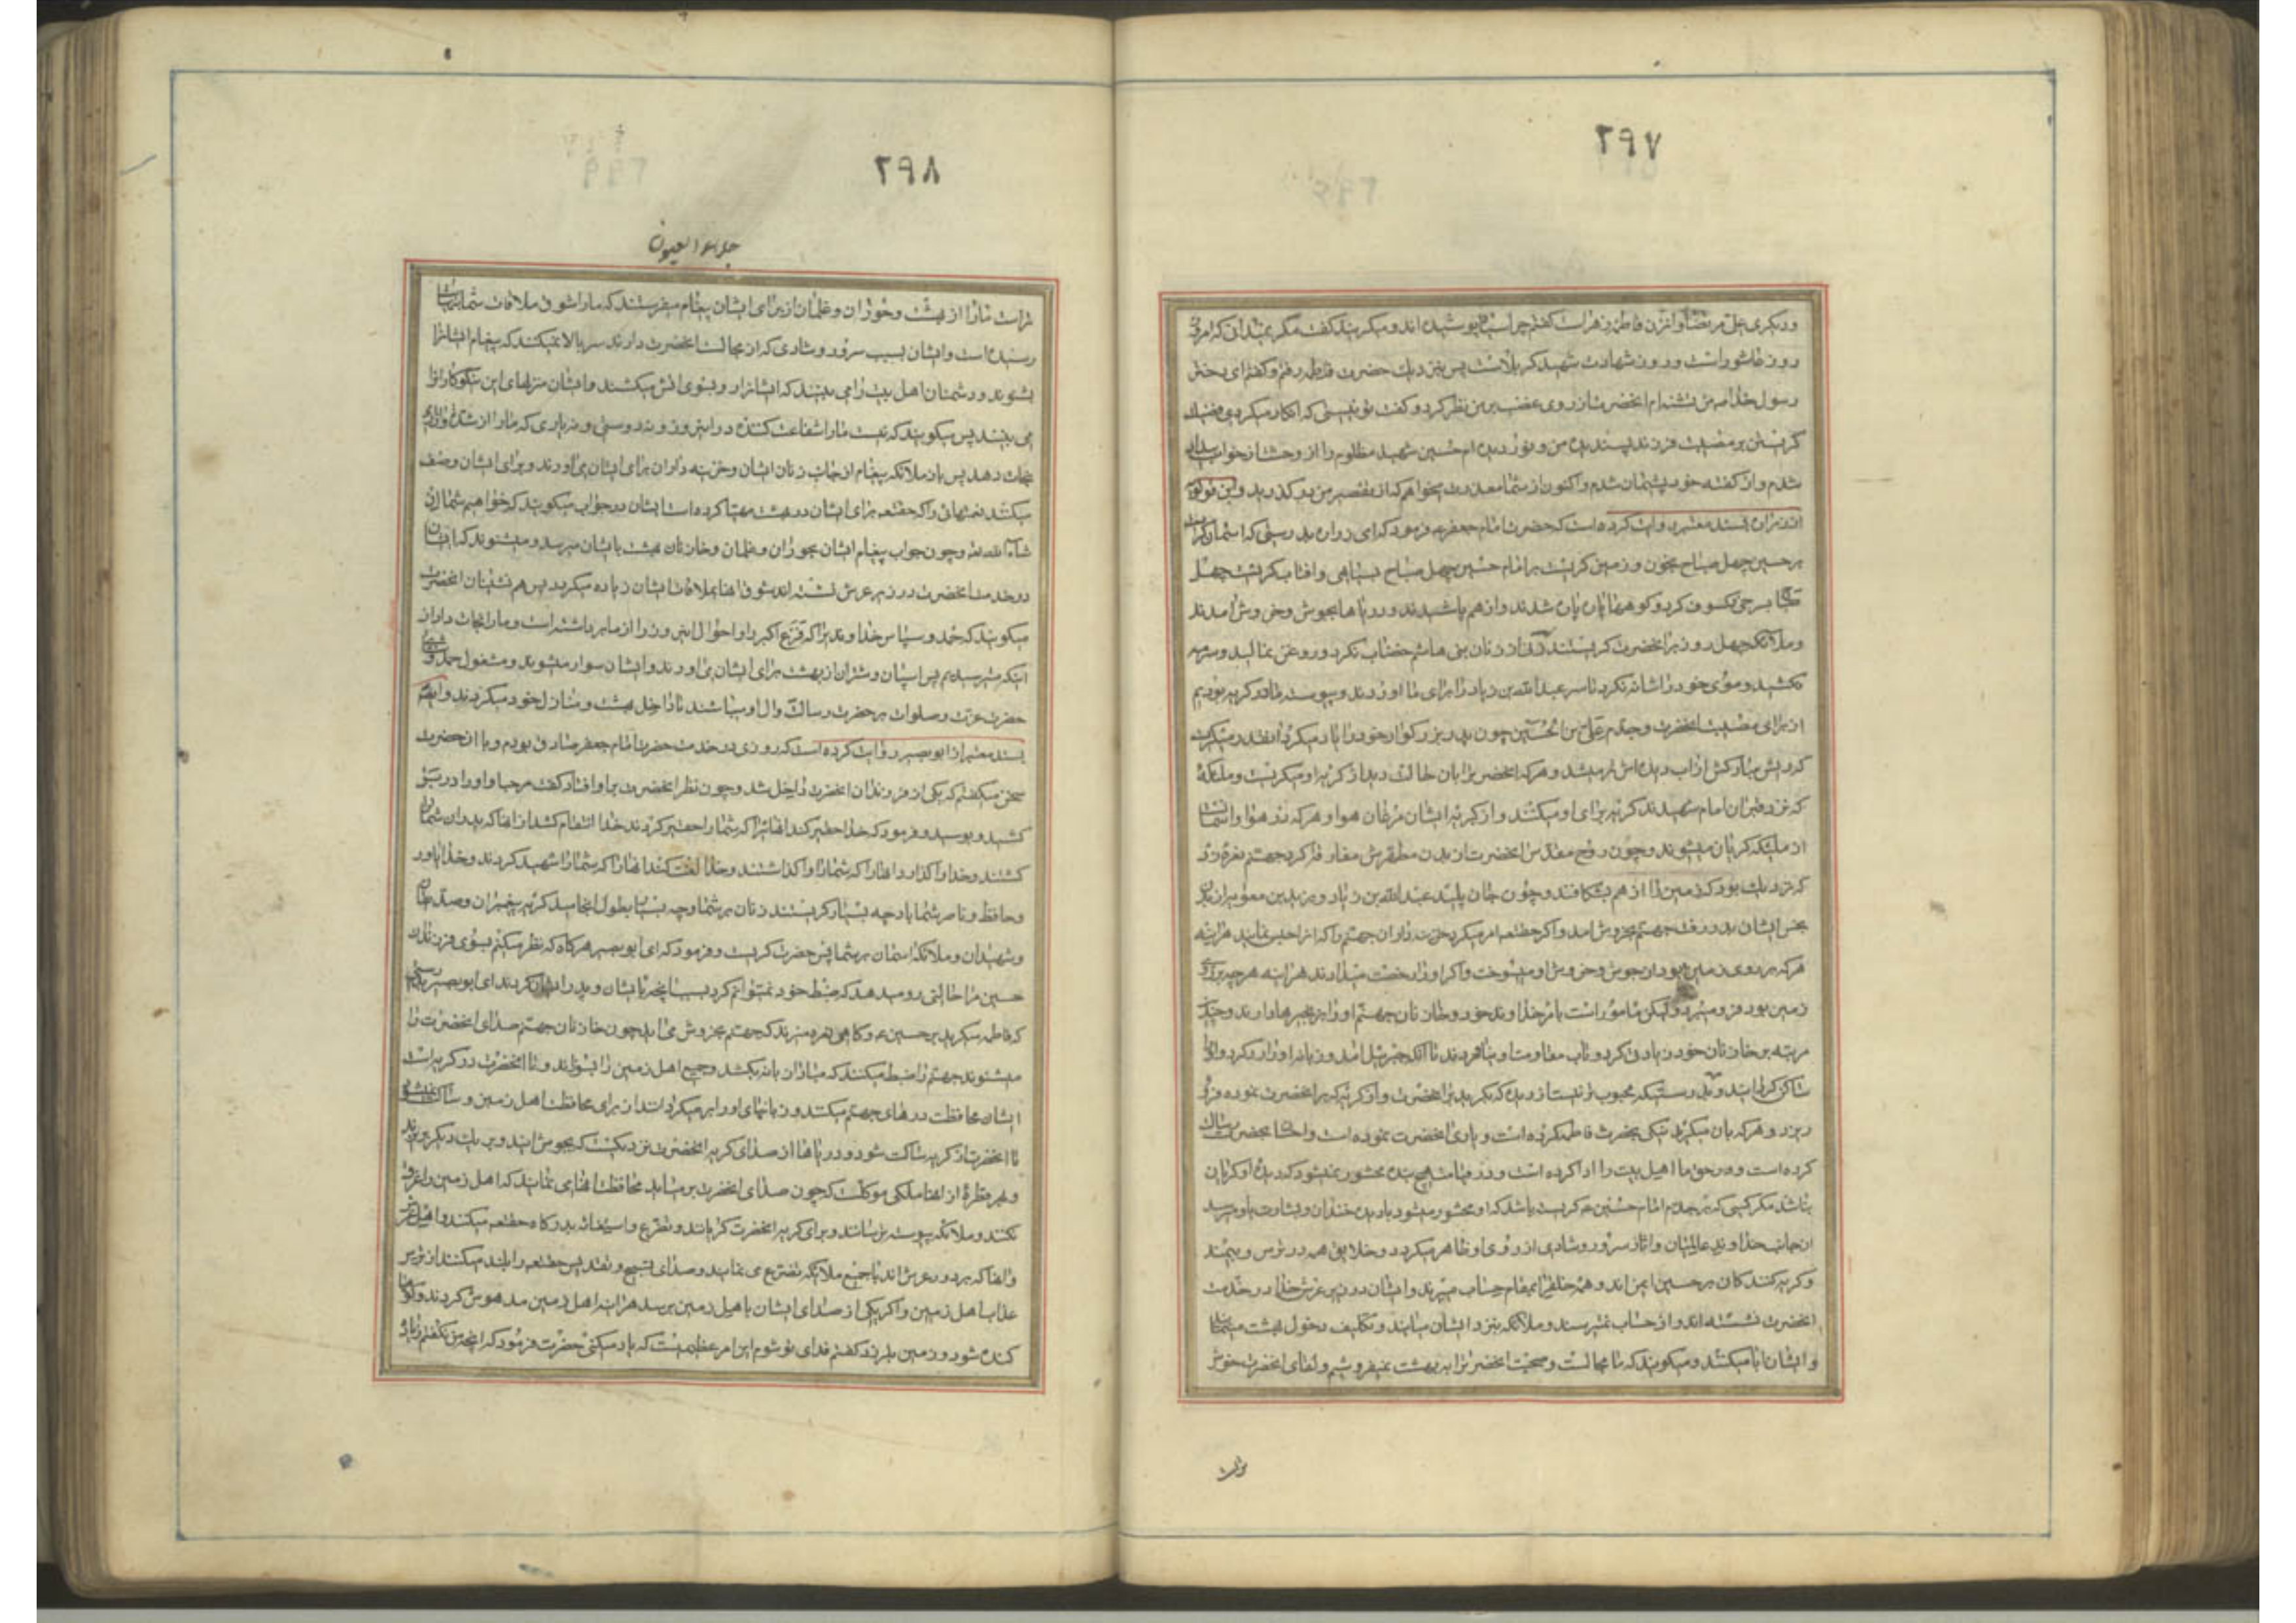 ۲۹۷
ودیکری علی مرتضا وانزن فاطمه زهراست کفتم چرا سیاه پوشیده اند ومیکریند کفت مکر نمیدانی که امروز
روز عاشوراست وروز شهادت شهید کربلاست پس بنزدیک حضرت فاطمه رفتم وکفتم ای دختر
رسول خدا من انحضرت از روی غضب بر من نظر کرد و کفت تو نیستی که انکار میکردی فضیلت
کریستن بر مصیبت فرزند پسندیده من و نور دیده ام حسین شهید مظلوم را از وحشت از خواب بیدار
شدم واز کفته خود پشیمان شدم واکنون از شما معذرت میخواهم که از تقصیر من در کذرید وابن قولویه
از زراره بسند معتبر روایت کرده است که حضرت امام جعفر ع فرمود که ای زراره بدرستی که اسمان کریست
بر حسین چهل صباح بخون و زمین کریست بر امام حسین چهل صباح بسیاهی وافتاب کریست چهل
صباح بسرخی وکسوف کرد و کوهها پاره پاره شدند واز هم پاشیدند ودریاها بجوش وخروش امدند
وملائکه چهل روز بر انحضرت کریستند وزنی از زنان بنی هاشم خضاب نکرد وروغن نمالید وسرمه
نکشید وموی خود را شانه نکرد تا سر عبدالله بن زیاد را برای ما اوردند وپیوسته ما در کریه بودیم
از برای مصیبت انحضرت وجدم علی بن الحسین چون پدر بزرکوار خود را یاد میکرد انقدر میکریست
که ریش مبارکش از اب دیده اش تر میشد وهر که انحضرت را بان حالت دید از کریه او میکریست وملئکه
که نزد قبر ان امام شهیدند کریه برای او میکنند واز کریه ایشان مرغان هوا وهر که در هوا واسمان است
از ملئکه کریان میشوند وچون روح مقدس انحضرت از بدن مطهرش مفارقت کرد جهنم نعره زد
که نزدیک بود که زمین را از هم بشکافد وچون جان پلید عبدالله بن زیاد ویزید بن معویه از بدن
نجس ایشان بدر رفت جهنم بخروش امد واکر حقتعه امر میکرد خزینه داران جهنم را که انرا حبس نمایند هراینه
هر که بر روی زمین بود از جوش وخروش او میسوخت واکر او را رخصت میدادند هراینه هر چه بر روی
زمین بود فرو میبرد ولیکن مامور است بامر خداوند خود وخازنان جهنم او را بزنجیرها دارند وچند
مرتبه بر خازنان خود زیادتی کرد وتاب مقاومت او نیاوردند تا انکه جبرئیل امد وبال بر او زد کرد واو را
ساکن کردانید وبدرستیکه محبوب تر نیست از دیده که بکرید بر انحضرت واز کریه که بر انحضرت نموده فرو
ریزد وهر که بان میکرید نیکی بحضرت فاطمه کرده است ویاری انحضرت نموده است واحسان بحضرت رسالت
کرده است وحق ما اهل بیت را ادا کرده است ودر قیامت هیچ بنده محشور نمیشود که دیده او کریان
نباشد مکر کسی که بر جدم امام حسین ع کریسته باشد که او محشور میشود با دیده خندان وبشارت باو میرسد
از جانب خداوند عالمیان واثار سرور وشادی از روی او ظاهر میکردد وخلایق همه در ترس وبیمند
وکریه کنند کان بر حسین ایمن اند وهمه خلق را بمقام حساب میبرند وایشان در زیر عرش خدا در خدمت
انحضرت نشسته اند واز حساب نمیترسند وملائکه بنزد ایشان میایند وتکلیف دخول بهشت مینمایند
وایشان ابا میکنند ومیکویند که ما مجالست وصحبت انحضرت را به بهشت نمیفروشیم ولقای انحضرت خوش
تراست
۲۹۸
جلاء العیون
تراست ما را از بهشت وحوران وغلمان از برای ایشان پیغام میفرستند که ما را شوق ملاقات شما بنهایت
رسیده است وایشان بسبب سرور وشادی که از مجالست انحضرت دارند سر بالا نمیکنند که پیغام ایشانرا
بشنوند ودشمنان اهل بیت را می بینند که ایشانرا رو بسوی اتش میکشند وایشان منزلهای این نیکوکارانرا
می بینند پس میکویند که نیست ما را شفاعت کننده در این روز ونه دوستی ونه یاری که ما را از
نجات دهد پس باز ملائکه پیغام از جانب زنان ایشان وخزینه داران برای ایشان می اورند وبرای ایشان وصف
میکنند نعمتهائی را که حقتعه برای ایشان در بهشت مهیا کرده است ایشان در جواب میکویند که خواهیم شما را ان
شاء الله وچون جواب پیغام ایشان بحوران وغلمان وخازنان بهشت بایشان میرسد ومیشنوند که ایشان
در خدمت انحضرت در زیر عرش نشسته اند شوق انها بملاقات ایشان زیاده میکردد پس هم نشینان انحضرت
میکویند که حمد وسپاس خداوندیرا که فزع اکبر را واحوال این روز را از ما برداشته است وما را نجات داد از
انکه میترسیدیم پس اسپان وشتران از بهشت برای ایشان می اورند وایشان سوار میشوند ومشغول حمد و
حضرت عزت وصلوات بر حضرت رسالت وال او میباشند تا داخل بهشت ومنازل خود میکردند وایضا
بسند معتبر از ابو بصیر روایت کرده است که روزی در خدمت حضرت امام جعفر صادق بودم وبا ان حضرت
سخن میکفتم که یکی از فرزندان انحضرت داخل شد وچون نظر انحضرت بر او افتاد کفت مرحبا واو را در بر
کشید وبوسید وفرمود که خدا حقیر کند انها را که شما را حقیر کردند خدا انتقام کشد از انها که پدران شما را
کشتند وخدا واکذارد انها را که شما را واکذاشتند وخدا لعنت کند انها را که شما را شهید کردند وخدا یاور
وحافظ وناصر شما باد چه بسیار کریستند زنان بر شما وچه بسیار بطول انجامید کریه پیغمبران وصدیقان
وشهیدان وملائکه اسمان بر شما پس حضرت کریست وفرمود که ای ابو بصیر هر کاه که نظر میکنم بسوی فرزندان
حسین مرا حالتی رو میدهد که ضبط خود نمیتوانم کرد بسبب انچه با ایشان وپدر ایشان کردند ای ابو بصیر بدرستی
که فاطمه میکرید بر حسین ع وکاهی نعره میزند که جهنم بخروش می اید چون خازنان جهنم صدای انحضرت را
میشنوند جهنم را ضبط میکنند که مبادا زبانه بکشد وجمیع اهل زمین را بسوزاند وتا انحضرت در کریه است
ایشان محافظت درهای جهنم میکنند وزبانهای او را بر میکردانند از برای محافظت اهل زمین وساکن نمیشود
تا انحضرت از کریه ساکت شود ودریاها از صدای کریه انحضرت نزدیکست که بجوش ایند وبر یک دیکر بریزند
وبهر قطره از انها ملکی موکلست که چون صدای انحضرت بر میاید محافظت انها می نماید که اهل زمین را غرق
نکنند وملائکه پیوسته ترسانند وبرای کریه انحضرت کریانند وتضرع واستغاثه بدرکاه حقتعه میکنند واهل عرش
وانها که بر دور عرش اند با جمیع ملائکه تضرع می نمایند وصدای تسبیح وتقدیس حقتعه را بلند میکنند از ترس
عذاب اهل زمین واکر یکی از صدای ایشان باهل زمین برسد هراینه اهل زمین مدهوش کردند وکوهها
کنده شود وزمین بلرزد کفتم فدای تو شوم این امر عظیمیست که یاد میکنی حضرت فرمود که انچه من نکفتم زیاد